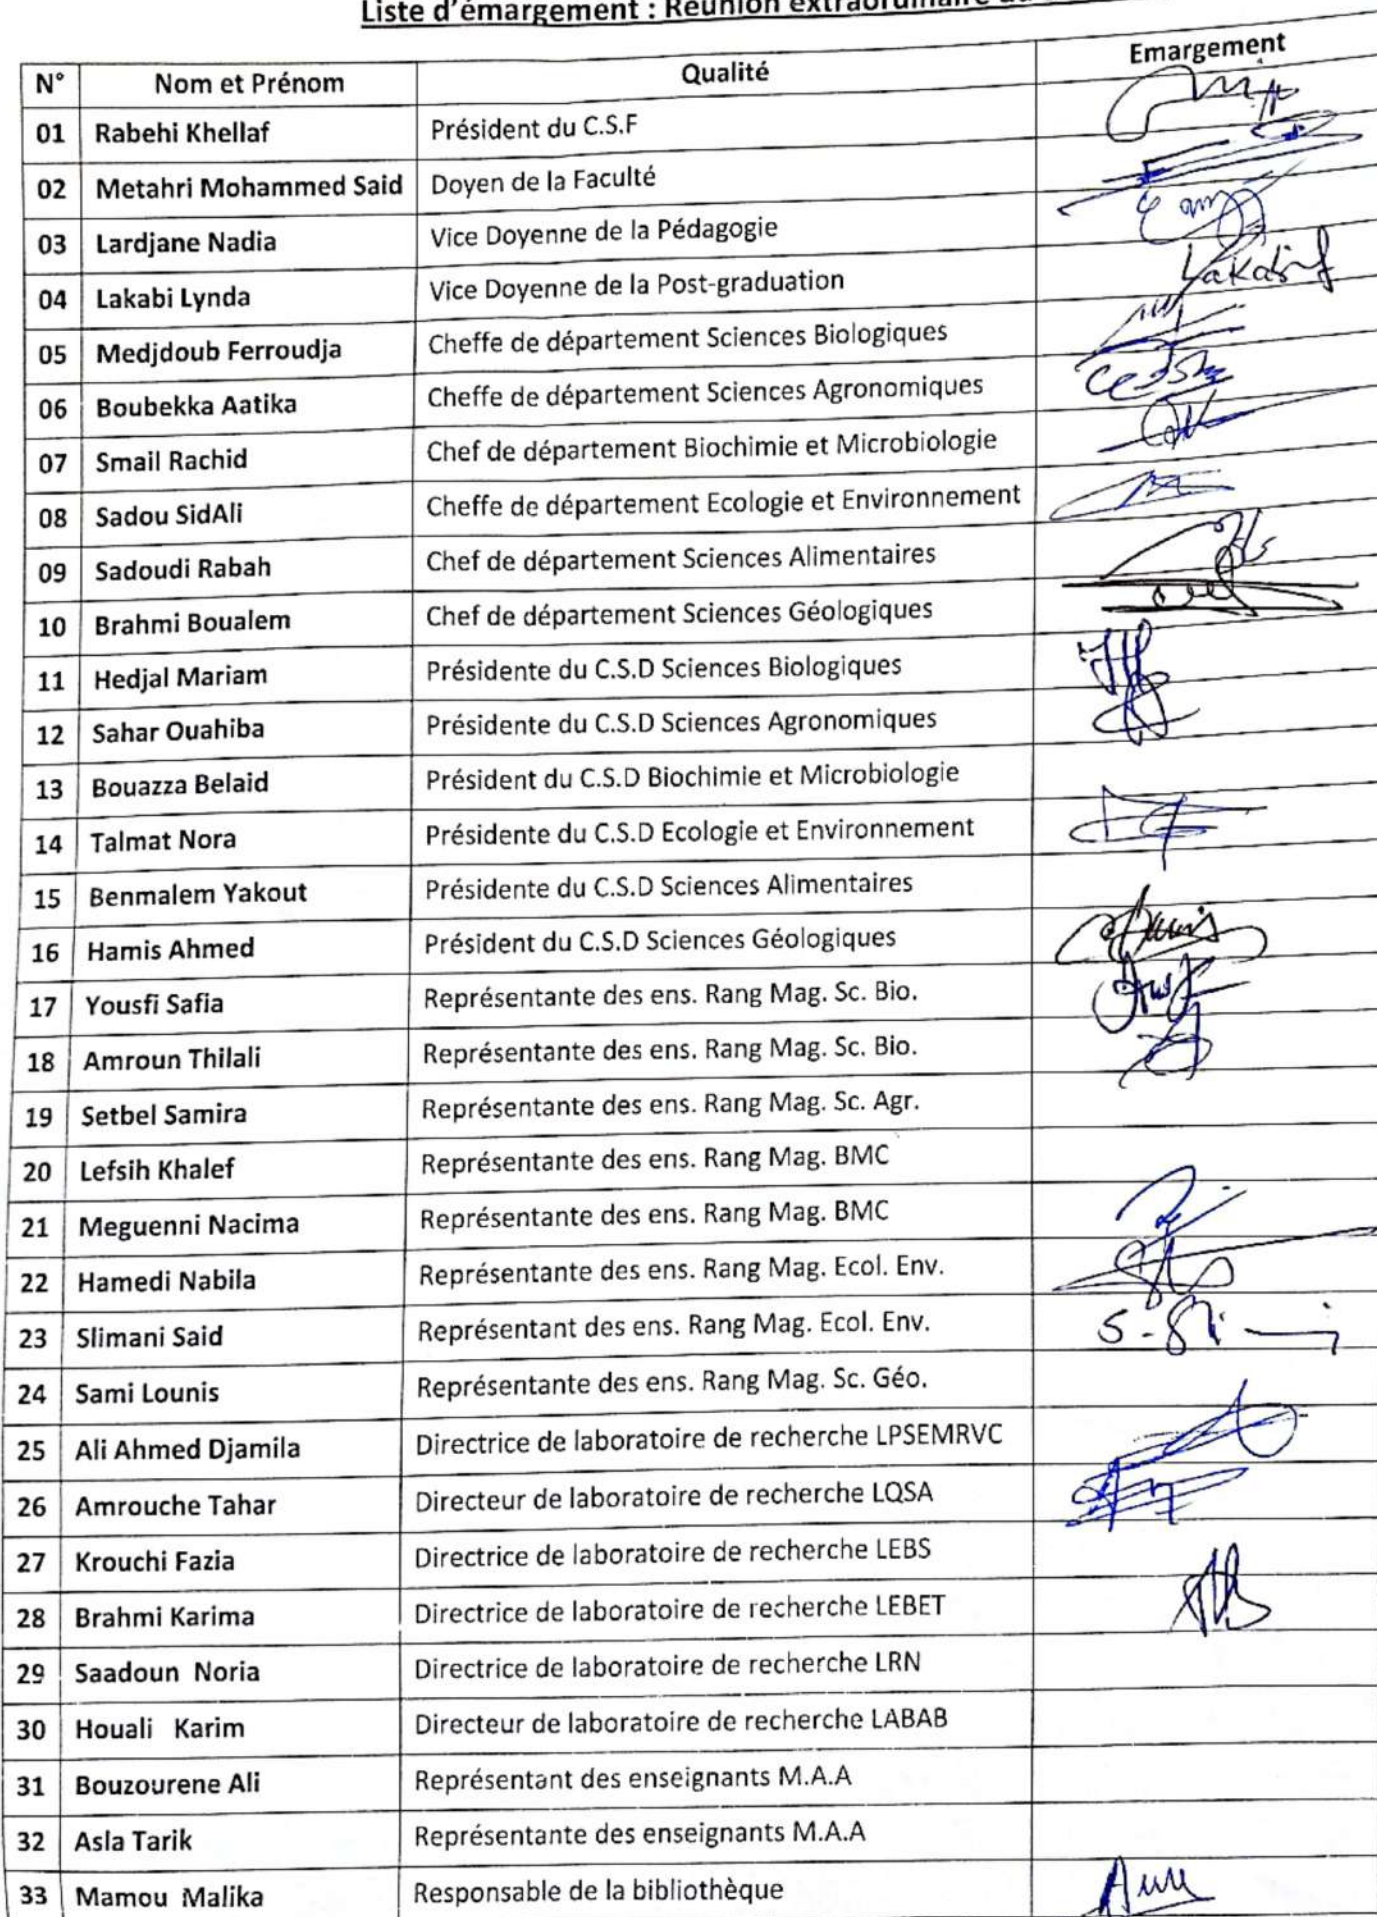 Liste d'émargement : Réunion extraordinaire
N° Nom et Prénom Qualité Emargement
01 Rabehi Khellaf Président du C.S.F
02 Metahri Mohammed Said Doyen de la Faculté
03 Lardjane Nadia Vice Doyenne de la Pédagogie
04 Lakabi Lynda Vice Doyenne de la Post-graduation Lakabi
05 Medjdoub Ferroudja Cheffe de département Sciences Biologiques
06 Boubekka Aatika Cheffe de département Sciences Agronomiques
07 Smail Rachid Chef de département Biochimie et Microbiologie
08 Sadou SidAli Cheffe de département Ecologie et Environnement
09 Sadoudi Rabah Chef de département Sciences Alimentaires
10 Brahmi Boualem Chef de département Sciences Géologiques
11 Hedjal Mariam Présidente du C.S.D Sciences Biologiques
12 Sahar Ouahiba Présidente du C.S.D Sciences Agronomiques
13 Bouazza Belaid Président du C.S.D Biochimie et Microbiologie
14 Talmat Nora Présidente du C.S.D Ecologie et Environnement
15 Benmalem Yakout Présidente du C.S.D Sciences Alimentaires
16 Hamis Ahmed Président du C.S.D Sciences Géologiques
17 Yousfi Safia Représentante des ens. Rang Mag. Sc. Bio.
18 Amroun Thilali Représentante des ens. Rang Mag. Sc. Bio.
19 Setbel Samira Représentante des ens. Rang Mag. Sc. Agr.
20 Lefsih Khalef Représentante des ens. Rang Mag. BMC
21 Meguenni Nacima Représentante des ens. Rang Mag. BMC
22 Hamedi Nabila Représentante des ens. Rang Mag. Ecol. Env.
23 Slimani Said Représentant des ens. Rang Mag. Ecol. Env.
24 Sami Lounis Représentante des ens. Rang Mag. Sc. Géo.
25 Ali Ahmed Djamila Directrice de laboratoire de recherche LPSEMRVC
26 Amrouche Tahar Directeur de laboratoire de recherche LQSA
27 Krouchi Fazia Directrice de laboratoire de recherche LEBS
28 Brahmi Karima Directrice de laboratoire de recherche LEBET
29 Saadoun Noria Directrice de laboratoire de recherche LRN
30 Houali Karim Directeur de laboratoire de recherche LABAB
31 Bouzourene Ali Représentant des enseignants M.A.A
32 Asla Tarik Représentante des enseignants M.A.A
33 Mamou Malika Responsable de la bibliothèque